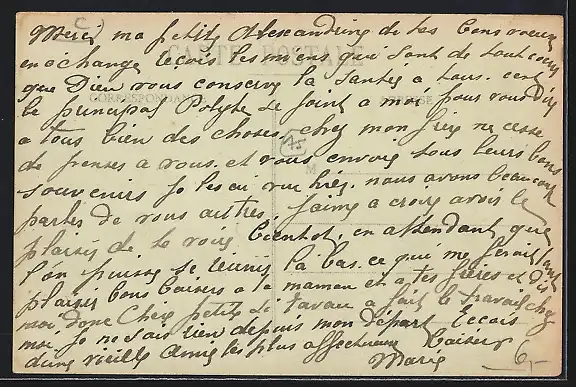 Merci ma petite Alexandrine de tes bons voeux
en échange reçois les miens qui sont de tout coeur
que Dieu vous conserve la santé a tous. cest
le principal Polyte se joint a moi pour vous dire
a tous bien des choses, chez mon frere ne cesse
de penser a vous. et vous envoie tous leurs bons
souvenirs je les ai vue hier. nous avons beaucoup
parler de vous autres, j'aime a croire avoir le
plaisir de te voir bientot, en attendant que
l'on puisse se réunir là bas. ce qui me ferait tant
plaisir bons baisers a ta maman et a tes frères et dis
moi donc Chère petite si a fait le travail chez
moi je ne sais rien depuis mon départ Recois
d'une vieille Amie les plus affectueux baisers
Marie
CARTE POSTALE
CORRESPONDANCE
ADRESSE
M
75
6,-